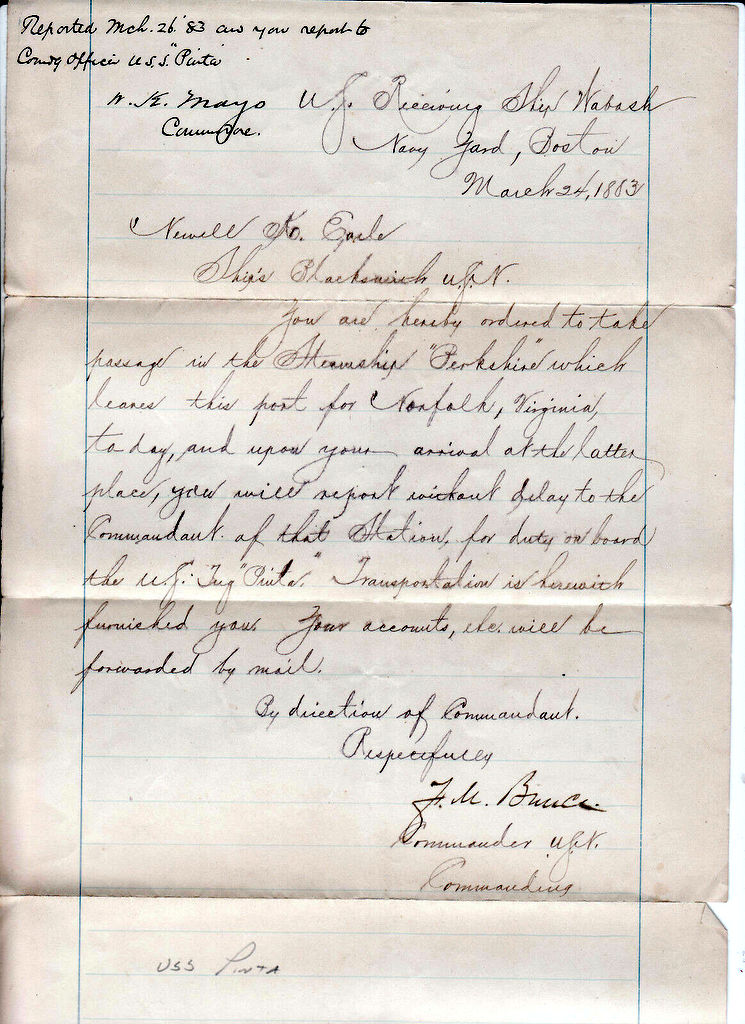 Reported Mch. 26. '83 and you report to
Comdg Officer U.S.S. "Pinta"
W. K. Mayo
Commodore.
U.S. Receiving Ship Wabash
Navy Yard, Boston
March 24, 1883
Newell K. Earle
Ship's Blacksmith U.S.N.
You are hereby ordered to take
passage in the Steamship "Berkshire" which
leaves this port for Norfolk, Virginia,
to day, and upon your arrival at the latter
place, you will report without delay to the
Commandant of that Station, for duty on board
the U.S. Tug "Pinta." Transportation is herewith
furnished you. Your accounts, etc. will be
forwarded by mail.
By direction of Commandant.
Respectfully
F. M. Bunce
Commander U.S.N.
Commanding
USS PINTA